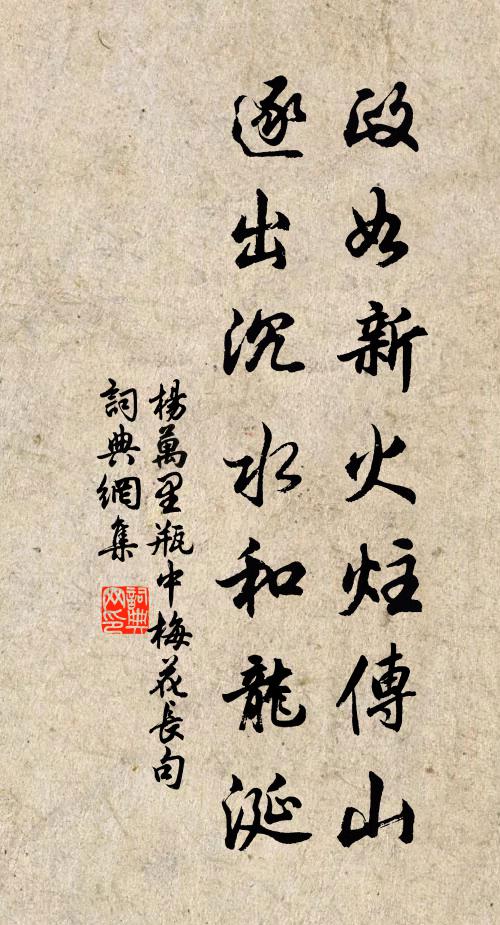 政如新火炷傳山
逐出沉水和龍涎
楊萬里瓶中梅花長句
詞典網集
詞典网印